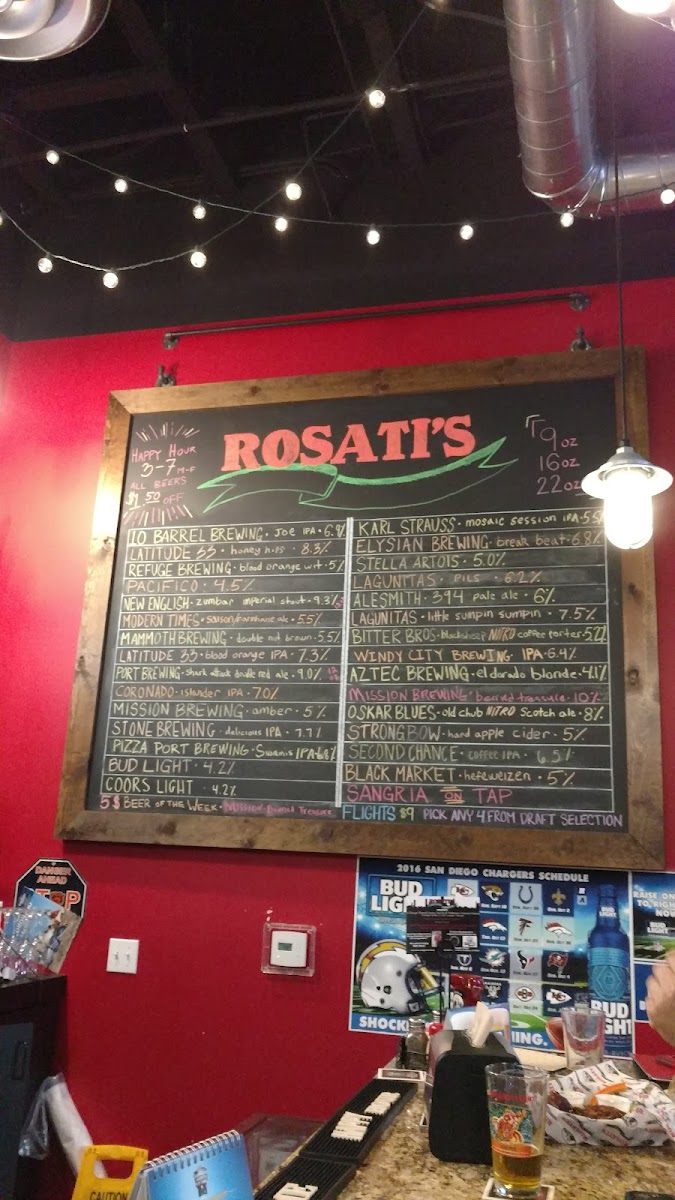 HAPPY HOUR
3-7 M-F
ALL BEERS
$1.50 OFF
ROSATI'S
9 oz
16 oz
22 oz
10 BARREL BREWING · JOE IPA · 6.9%
LATITUDE 33 · honey hips · 8.3%
REFUGE BREWING · blood orange wit · 5%
PACIFICO · 4.5%
NEW ENGLISH · zumbar imperial stout · 9.3%
MODERN TIMES · saison/farmhouse ale · 5.5%
MAMMOTH BREWING · double nut brown · 5.5%
LATITUDE 33 · blood orange IPA · 7.3%
PORT BREWING · shark attack double red ale · 9.0%
CORONADO · islander IPA · 7.0%
MISSION BREWING · amber · 5%
STONE BREWING · delicious IPA · 7.7%
PIZZA PORT BREWING · Swamis IPA · 6.8%
BUD LIGHT · 4.2%
COORS LIGHT · 4.2%
5$ BEER OF THE WEEK · MISSION · Buried Treasure
KARL STRAUSS · mosaic session IPA · 5.5%
ELYSIAN BREWING · break beat · 6.8%
STELLA ARTOIS · 5.0%
LAGUNITAS · PILS · 6.2%
ALESMITH · 394 pale ale · 6%
LAGUNITAS · little sumpin sumpin · 7.5%
BITTER BROS · blacksheep NITRO coffee porter · 5.2%
WINDY CITY BREWING · IPA · 6.4%
AZTEC BREWING · el dorado blonde · 4.1%
MISSION BREWING · buried treasure · 10%
OSKAR BLUES · old chub NITRO Scotch ale · 8%
STRONGBOW · hard apple cider · 5%
SECOND CHANCE · COFFEE IPA · 6.5%
BLACK MARKET · hefeweizen · 5%
SANGRIA ON TAP
FLIGHTS $9 PICK ANY 4 FROM DRAFT SELECTION
DANGER
AHEAD
2016 SAN DIEGO CHARGERS SCHEDULE
BUD
LIGHT
RAISE ON
TO RIGH
NOW
BUD
SHOCK
ING.
CAUTION